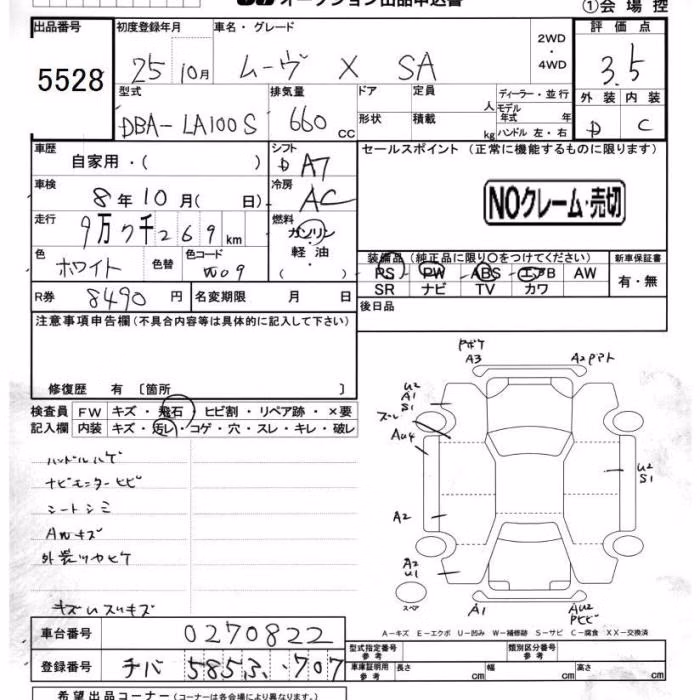 オークション出品申込書 ①会場控
出品番号 初度登録年月 車名・グレード 評価点
5528 25 10月 ムーヴ X SA 2WD・4WD 3.5
型式 排気量 ドア 定員 人 ディーラー・並行 外装 内装
DBA-LA100S 660 CC 形状 積載 kg モデル年式 年 ハンドル 左・右 D C
車歴 自家用・( ) シフト D A7 セールスポイント (正常に機能するものに限ります)
車検 8年10月( 日) 冷房 AC
NOクレーム・売切
走行 9万7千269km 燃料 ガソリン・軽油・( )
色 ホワイト 色替 色コード W09
装備品(純正品に限り○をつけてください) 新車保証書
PS PW ABS エアB AW 有・無
SR ナビ TV カワ
R券 8490円 名変期限 月 日 後日品
注意事項申告欄(不具合内容等は具体的に記入して下さい)
修復歴 有 〔箇所 〕
検査員 FW キズ・飛石・ヒビ割・リペア跡・×要
記入欄 内装 キズ・汚レ・コゲ・穴・スレ・キレ・破レ
ハンドルハゲ
ナビモニターヒビ
シートシミ
AWキズ
外装ツヤヒケ
キズ
A3
U2
A1
S1
ズレ
AU4
U2
S1
A2
A2
U1
スペア
A1
AU2
A-キズ E-エクボ U-凹み W-補修跡 S-サビ C-腐食 XX-交換済
車台番号 0270822
登録番号 チバ 585ふ・707
型式指定番号 参考 類別区分番号 参考
車庫証明用 参考 長さ cm 幅 cm 高さ cm
希望出品コーナー(コーナーは各会場により異なります。)